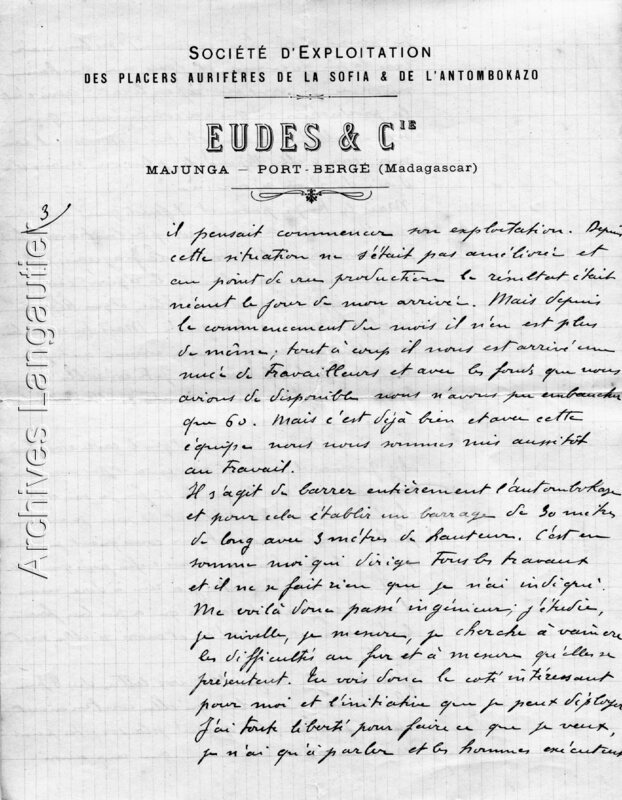 SOCIÉTÉ D'EXPLOITATION
DES PLACERS AURIFÈRES DE LA SOFIA & DE L'ANTOMBOKAZO
EUDES & CIE
MAJUNGA – PORT-BERGÉ (Madagascar)
3
il pensait commencer son exploitation. Depuis
cette situation ne s'était pas améliorée et
au point de vue production le résultat était
néant le jour de mon arrivée. Mais depuis
le commencement du mois il n'en est plus
de même; tout à coup il nous est arrivé une
nuée de travailleurs et avec les fonds que nous
avions de disponible nous n'avons pu embaucher
que 60. Mais c'est déjà bien et avec cette
équipe nous nous sommes mis aussitôt
au travail.
Il s'agit de barrer entièrement l'antombokazo
et pour cela établir un barrage de 30 mètres
de long avec 3 mètres de hauteur. C'est en
somme moi qui dirige tous les travaux
et il ne se fait rien que je n'ai indiqué.
Me voilà donc passé ingénieur; j'étudie,
je nivelle, je mesure, je cherche à vaincre
les difficultés au fur et à mesure qu'elles se
présentent. Tu vois donc le coté intéressant
pour moi et l'initiative que je peux déployer
J'ai toute liberté pour faire ce que je veux,
je n'ai qu'à parler et les hommes exécutent
Archives Langautier